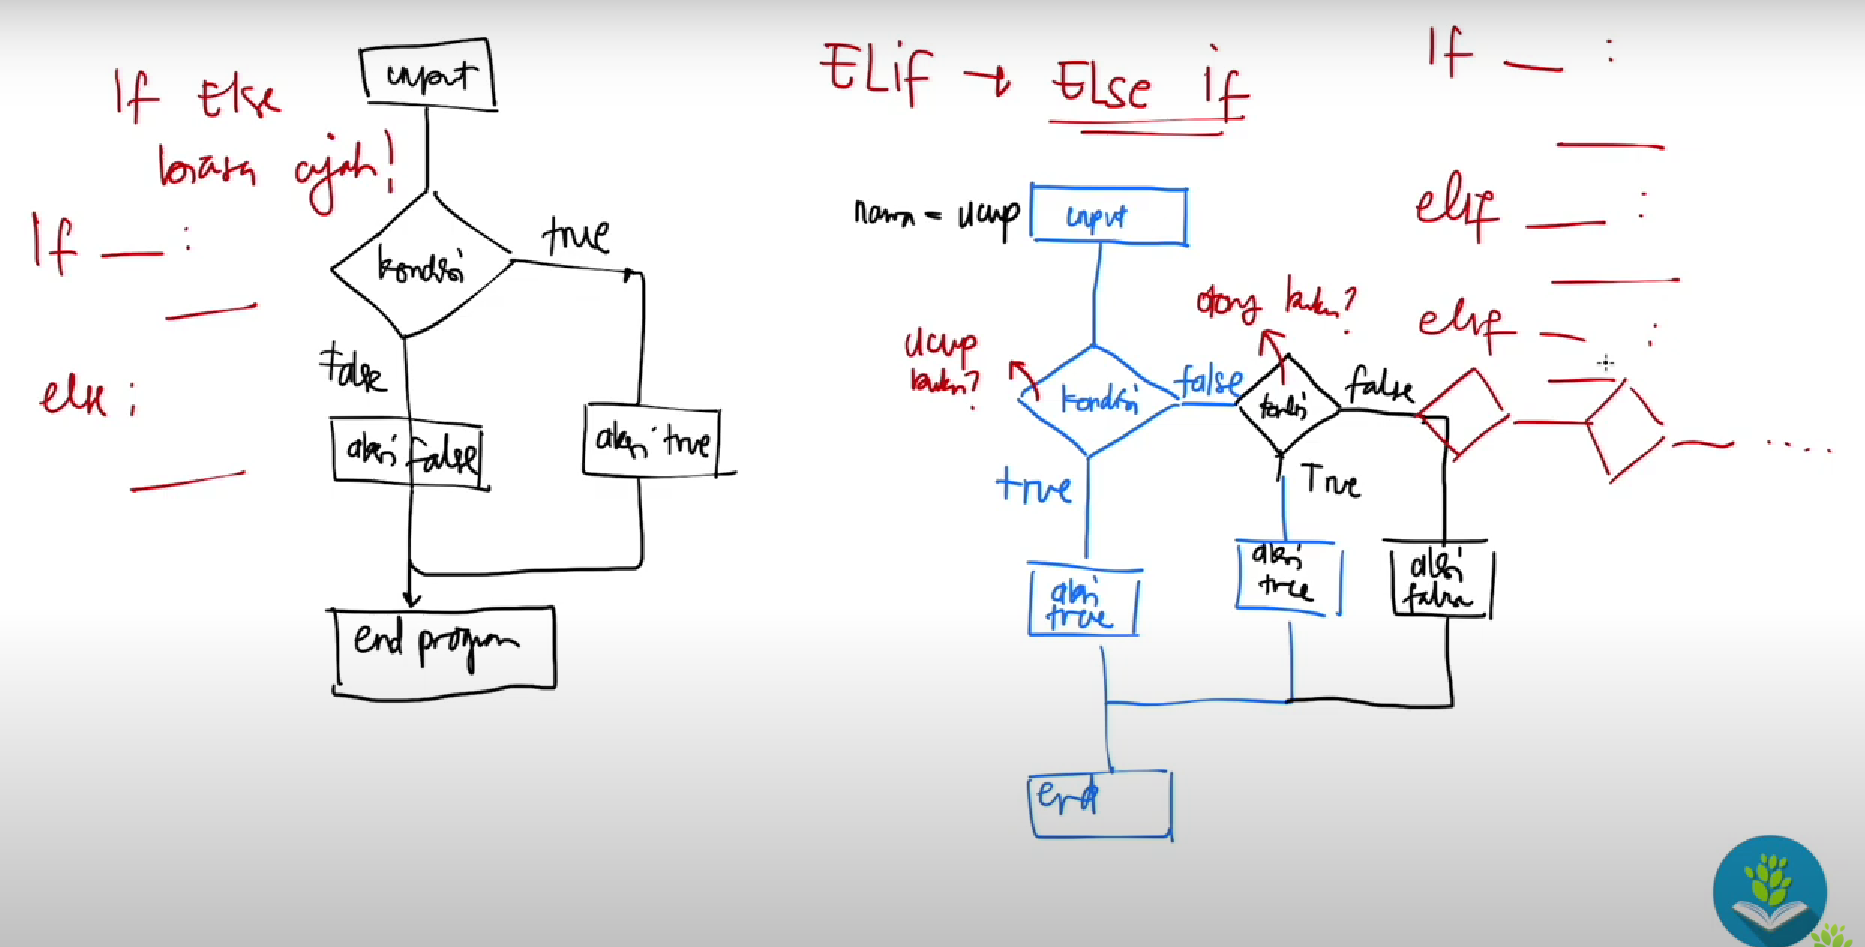 If Else
biasa ajah!
If __ :
else :
input
kondisi
true
False
aksi false
aksi true
end program
ELif → Else if
nama = ucup
input
ucup
bukan?
otong bukan?
kondisi
false
kondisi
false
true
True
aksi
true
aksi
true
aksi
false
end
If __ :
elif __ :
elif __ :
.....